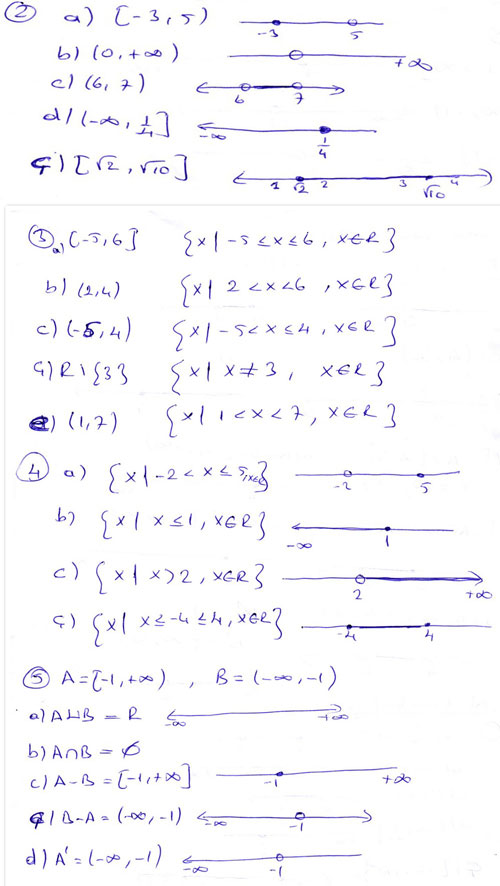 ② a) [-3, 5) -3 5
b) (0, +∞) +∞
c) (6, 7) 6 7
d) (-∞, 1/4] -∞ 1/4
ç) [√2, √10] 1 √2 2 3 √10 4
③ a) [-5, 6] {x | -5 ≤ x ≤ 6, x∈R}
b) (2, 4) {x | 2 < x < 6, x∈R}
c) (-5, 4) {x | -5 < x ≤ 4, x∈R}
ç) R \ {3} {x | x ≠ 3, x∈R}
(1, 7) {x | 1 < x < 7, x∈R}
④ a) {x | -2 < x ≤ 5, x∈R} -2 5
b) {x | x ≤ 1, x∈R} -∞ 1
c) {x | x > 2, x∈R} 2 +∞
ç) {x | x ≤ -4 ≤ 4, x∈R} -4 4
⑤ A = [-1, +∞) , B = (-∞, -1)
a) A∪B = R -∞ +∞
b) A∩B = ∅
c) A-B = [-1, +∞] -1 +∞
ç) B-A = (-∞, -1) -∞ -1
d) A' = (-∞, -1) -∞ -1